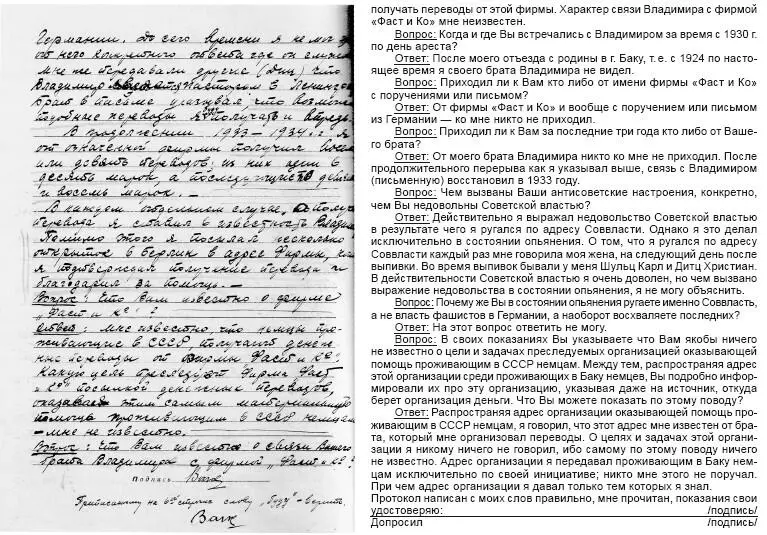 Германии. До сего времени я не мог
от него конкретного ответа где он служи
мне же передавали другие что
Владимир является пастором в Ленинго
Брат в письме указывал, что
подобные переводы я получать и впредь.
В продолжении 1933–1934 г. я
от означенной фирмы получил
или девять переводов: из них один в
десять марок, а последующие
и восемь марок. –
В каждом отдельном случае,
перевода я ставил в известность Влади
Помимо этого я посылал несколько
открыток в Берлин в адрес фирмы,
я подтверждал получение перевода и
благодарил за помощь. –
Вопрос: Что Вам известно о фирме
„Фаст и Ко"?
Ответ: Мне известно, что немцы про-
живающие в СССР, получают денеж-
ные переводы от фирмы Фаст и Ко.
Какую цель преследует фирма Фаст
и Ко посылкой денежных переводов,
оказывая этим самым материальную
помощь проживающим в СССР немцам
– мне не известно.
Вопрос: Что Вам известно о связи Вашего
брата Владимира с фирмой „Фаст и Ко"?
Подпись
Приписанному на 6й строке слову „буду" – верить.
получать переводы от этой фирмы. Характер связи Владимира с фирмой
«Фаст и Ко» мне неизвестен.
Вопрос: Когда и где Вы встречались с Владимиром за время с 1930 г.
по день ареста?
Ответ: После моего отъезда с родины в г. Баку, т.е. с 1924 по насто-
ящее время я своего брата Владимира не видел.
Вопрос: Приходил ли к Вам кто либо от имени фирмы «Фаст и Ко»
с поручениями или письмом?
Ответ: От фирмы «Фаст и Ко» и вообще с поручением или письмом
из Германии — ко мне никто не приходил.
Вопрос: Приходил ли к Вам за последние три года кто либо от Ваше-
го брата?
Ответ: От моего брата Владимира никто ко мне не приходил. После
продолжительного перерыва как я указывал выше, связь с Владимиром
(письменную) восстановил в 1933 году.
Вопрос: Чем вызваны Ваши антисоветские настроения, конкретно,
чем Вы недовольны Советской властью?
Ответ: Действительно я выражал недовольство Советской властью
в результате чего я ругался по адресу Соввласти. Однако я это делал
исключительно в состоянии опьянения. О том, что я ругался по адресу
Соввласти каждый раз мне говорила моя жена, на следующий день после
выпивки. Во время выпивок бывали у меня Шульц Карл и Дитц Христиан.
В действительности Советской властью я очень доволен, но чем вызвано
выражение недовольства в состоянии опьянения, я не могу объяснить.
Вопрос: Почему же Вы в состоянии опьянения ругаете именно Соввласть,
а не власть фашистов в Германии, а наоборот восхваляете последних?
Ответ: На этот вопрос ответить не могу.
Вопрос: В своих показаниях Вы указываете что Вам якобы ничего
не известно о цели и задачах преследуемых организацией оказывающей
помощь проживающим в СССР немцам. Между тем, распространяя адрес
этой организации среди проживающих в Баку немцев, Вы подробно инфор-
мировали их про эту организацию, указывая даже на источник, откуда
берет организация деньги. Что Вы можете показать по этому поводу?
Ответ: Распространяя адрес организации оказывающей помощь про-
живающим в СССР немцам, я говорил, что этот адрес мне известен от бра-
та, который мне организовал переводы. О целях и задачах этой органи-
зации я никому ничего не говорил, ибо самому по этому поводу ничего
не известно. Адрес организации я передавал проживающим в Баку нем-
цам исключительно по своей инициативе; никто мне этого не поручал.
При чем адрес организации я давал только тем которых я знал.
Протокол написан с моих слов правильно, мне прочитан, показания свои
удостоверяю: /подпись/
Допросил /подпись/